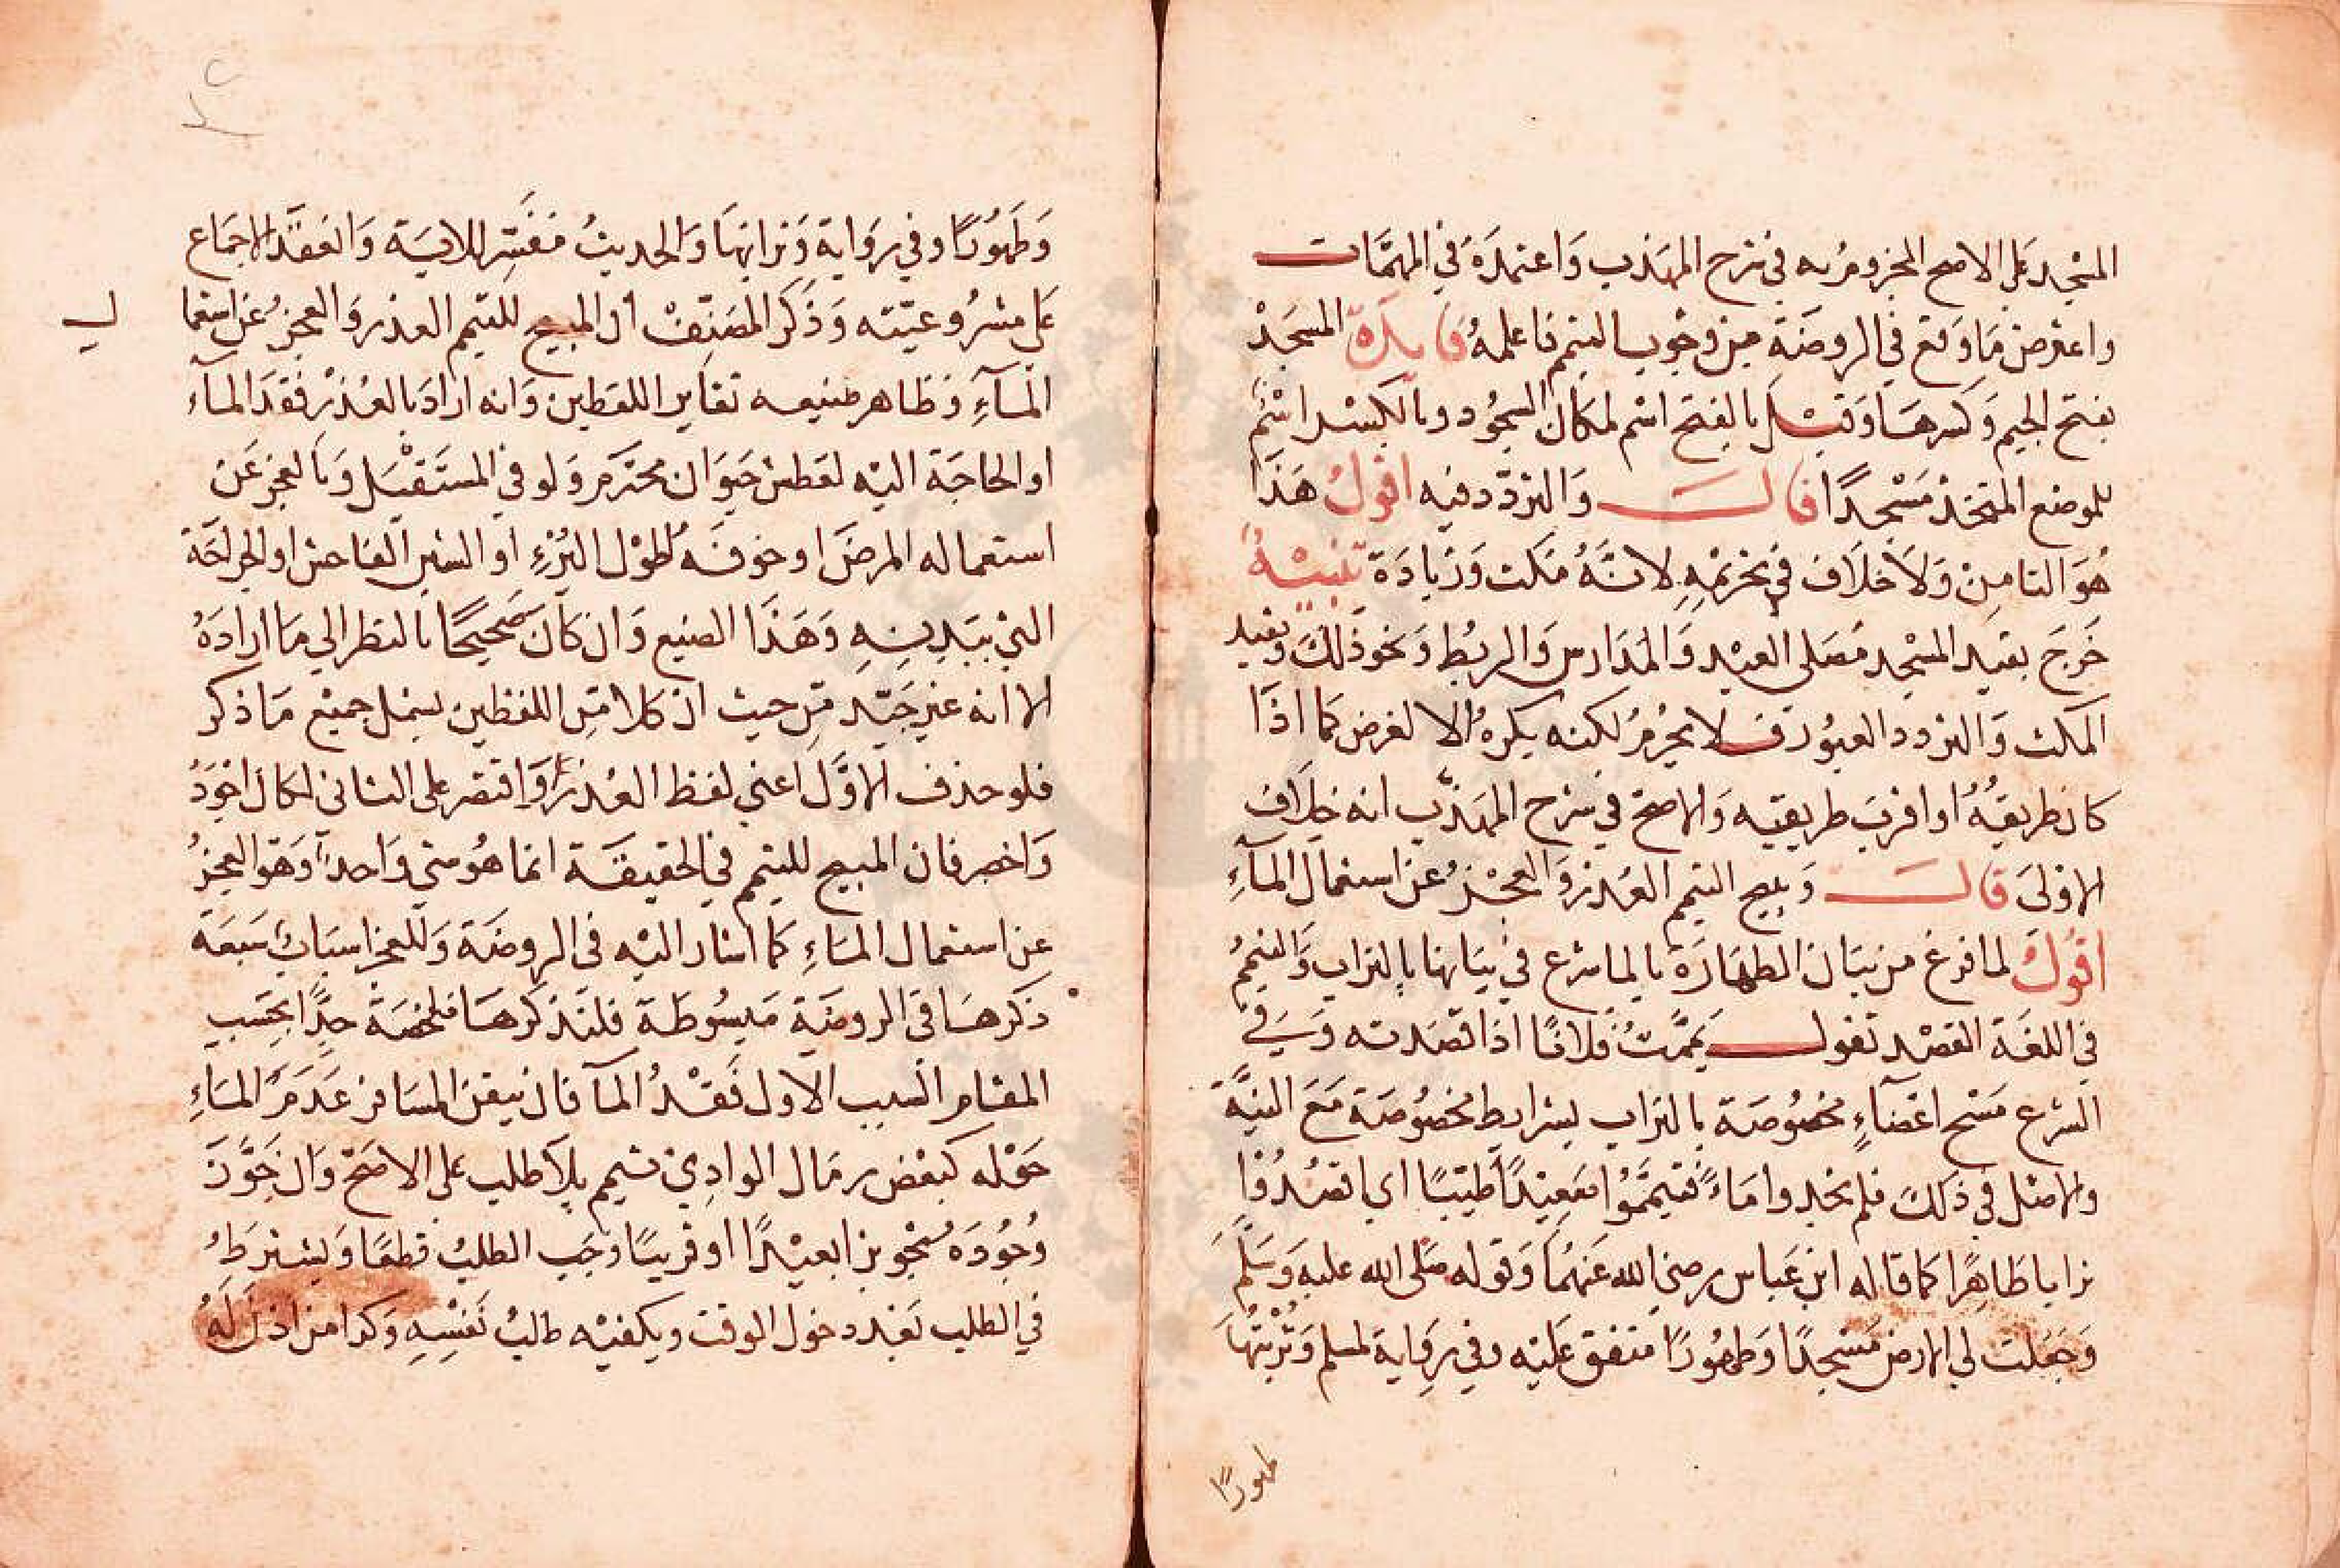 المسجد على الاصح المجزوم به في شرح المهذب وَاعتمدَهُ في المهمَّات
واعترض مَا وَقع في الروضَة من وجُوب التيمم فاعلمهُ فايدَة المسجَدْ
بفتح الجيم وَكسرهَا وَقيْل بالفتح اسْم لمكان السجُود وبالكسْر اسْمٌ
للموضع المتخذ مَسْجدًا قالَ وَالتردّد فيه اقولُ هَذَا
هُوَ الثامِنْ وَلاَ خلاَف في تحريمْهِ لانَّهُ مَكث وَزيَادَة تنبيْهُ
خرَجَ بقيد المسْجد مُصَلى العيْد وَالمدَارس وَالربُط وَنحو ذلكَ وبقيد
المكث وَالتردد العبُور فلا يحرُمُ لكنه يكرهُ الا لغرض كما اذَا
كان طريقهُ او اقربَ طريقيه وَالاصح في شرح المهذّب انه خلاَف
الاولىَ قالَ وَيبيح التيمم العُذر وَالعجْزُ عن استعمال الماَءِ
اقولُ لما فرغ من بيَان الطهَارَة بالما شرع في بيَانها بالترَاب وَالتيممُ
في اللغَة القصْد تقول يممَّتُ فلانًا اذا قصَدته وَ في
الشرع مَسْح اعْضَآءٍ مخصُوصَة بالترَاب بشرايط مخصُوصَة مَعَ النيَّة
والاصْل في ذلكَ فلم تجدوا مَاءً فتيممَّوُا صَعيْدًا طيّبًا اي اقصُدُوْا
ترابا طَاهِرًا كما قاله ابن عَباس رضيَ الله عَنهُمَا وَقوله صَلى الله عليه وَسَلَّمَ
وَجَعلت لي الارض مَسْجدًا وَطهُورًا متفق عَليْه وفي رِوَاية لمسلم وَتُرْبتُهَا
طهورًا
وَطَهُورًا وفي رِوَاية وَترابهَا وَالحديثُ مفَسِّر للايَة وَانعقدَ الاجمَاع
على مشرُوعيّته وَذكرَ المصَنِفْ ان المبيح للتيمم العذر وَالعجزُ عن استعما
ل
المآءِ وَظاهر صَنيعه تغاير اللفظين وَانه ارادَ بالعُذر فقدَ الماء
او الحَاجَة اليْه لعَطش حَيوَان محترَم وَلو في المستَقبَل وَبالعجز عَن
استعماله المرضَ او خوفَه طُوْل البُرْءِ او الشين الفاحش او الجرَاحَة
التيْ ببَدِنِهِ وَهَذَا الصنيع وَان كانَ صَحيْحًا بالنظر الي مَا ارادَهُ
الا انه غير جَيّد مِن حيث ان كلا مّن اللفظين يشمل جميْع مَا ذكر
فلو حذف الاوَّل اعني لفظ العُذر وَاقتصر على الثاني لكان اجوَدُ
وَاخصر فان المبيح للتيمم في الحقيقَة انما هُو شيْ وَاحدٌ وَهوَ العجزُ
عن استعمال المَاءِ كما اشار اليْه في الروضَة وَللعجز اسبَابٌ سَبعَة
ذكرهَا في الروضَة مَبسُوطَة فلنذكرهَا ملخصَة جدًّا بحسَب
المقام السبب الاول فَقْدُ الماَ فان تيقن المسَافر عَدَمَ المَاءِ
حَوْله كبَعْض رمَال الوادِيْ تيمم بِلاَ طلب على الاصَحّ وَان جَوَّزَ
وُجُودَهُ تجويزا بعيْدًا او قريبًا وَجَب الطلبُ قطعًا وَيشترَطُ
في الطلب بَعْد دخول الوقت ويكفيْه طلبُ نَفْسِهِ وَكذا من اذنَ لهُ